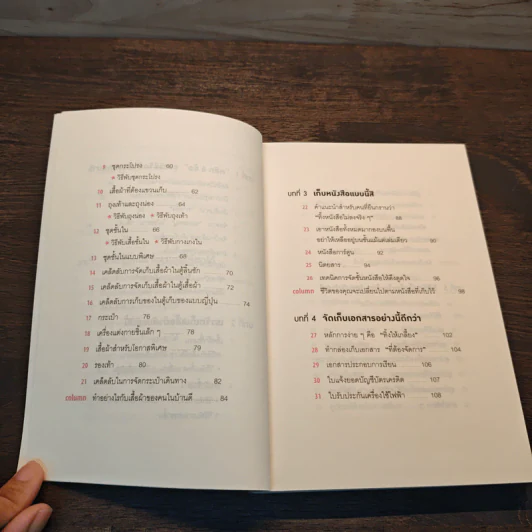 9 ชุดกระโปรง 60
• วิธีพับชุดกระโปรง
10 เสื้อผ้าที่ต้องแขวนเก็บ 62
11 ถุงเท้าและถุงน่อง 64
• วิธีพับถุงน่อง • วิธีพับถุงเท้า
12 ชุดชั้นใน 66
• วิธีพับเสื้อชั้นใน • วิธีพับกางเกงใน
13 ชุดชั้นในแบบพิเศษ 69
14 เคล็ดลับการจัดเก็บเสื้อผ้าในตู้ลิ้นชัก 70
15 เคล็ดลับการจัดเก็บเสื้อผ้าในตู้เสื้อผ้า 72
16 เคล็ดลับการเก็บของในตู้เก็บของแบบญี่ปุ่น 74
17 กระเป๋า 76
18 เครื่องแต่งกายชิ้นเล็ก ๆ 78
19 เสื้อผ้าสำหรับโอกาสพิเศษ 79
20 รองเท้า 80
21 เคล็ดลับในการจัดกระเป๋าเดินทาง 82
column ทำอย่างไรกับเสื้อผ้าของคนในบ้านดี 84
บทที่ 3 เก็บหนังสือแบบนี้สิ
22 คำแนะนำสำหรับคนที่ยืนกรานว่า
"ทิ้งหนังสือไม่ลงจริง ๆ" 88
23 เอาหนังสือทั้งหมดมากองบนพื้น
อย่าให้เหลืออยู่บนชั้นแม้แต่เล่มเดียว 90
24 หนังสือการ์ตูน 92
25 นิตยสาร 94
26 เทคนิคการจัดชั้นหนังสือให้ดึงดูดใจ 96
column ชีวิตของคุณจะเปลี่ยนไปตามหนังสือที่เก็บไว้ 98
บทที่ 4 จัดเก็บเอกสารอย่างนี้ดีกว่า
27 หลักการง่าย ๆ คือ "ทิ้งให้เกลี้ยง" 102
28 ทำกล่องเก็บเอกสาร "ที่ต้องจัดการ" 104
29 เอกสารประกอบการเรียน 106
30 ใบแจ้งยอดบัญชีบัตรเครดิต 107
31 ใบรับประกันเครื่องใช้ไฟฟ้า 108